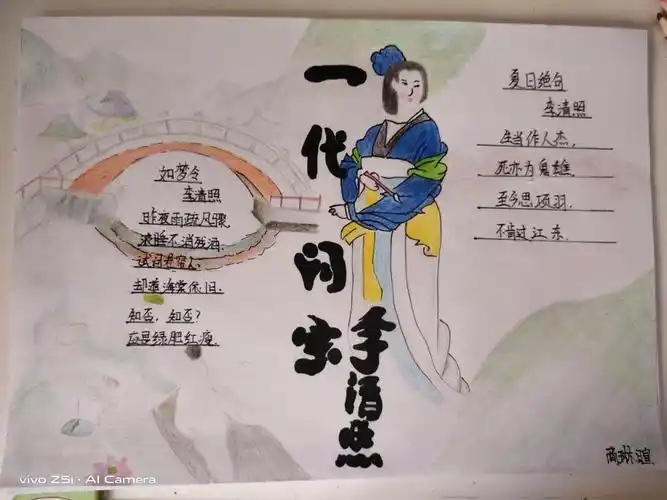 一代词宗
李清照
如梦令
李清照
昨夜雨疏风骤
浓睡不消残酒.
试问卷帘人.
却道海棠依旧.
知否,知否?
应是绿肥红瘦.
夏日绝句
李清照
生当作人杰,
死亦为鬼雄.
至今思项羽.
不肯过江东.
vivo Z5i · AI Camera